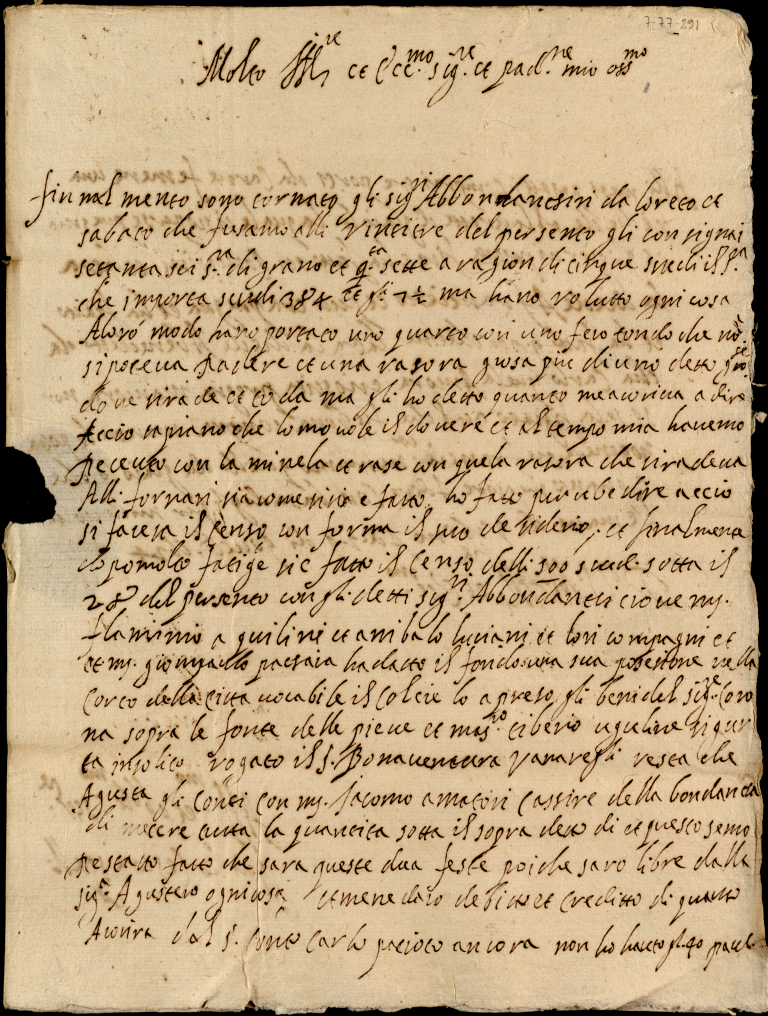 7-77-291
Molto Ill.re et Ecc.mo sig.re et pad.ne mio oss.mo
finnal mento sono tornato gli sig.ri Abbondantsiri da loreto et
sabato che fusamo alli vintitre del persento gli consignai
setanta sei s.ra di grano et q.ta sette a ragion di cinque scudi il s.ra
che importa scudi 384 et gli 7½ ma hano voluto ogni cosa
Aloro modo hano portato uno quarto con uno fero tondo che no
si poteva radere et una rasora grosa piu di uno detto
dove sirade et to da ma gli ho detto quanto me acoriva a dire
Accio sapiano che lo movole il dovere et al tempo mia havemo
receuto con la minela et rase con quela rasora che siradeva
Alli fornari sia come sisia e fatto ho fatto per ubedire accio
si facesa il senso con forma il suo desiderio. et finalmena
dopo molto fatige sie fatto il Censo delli 500 scud. sotta il
28 del persento con gli detti sig.ri Abbondantsi ciove ms.
flaminio aquilini et anibalo luciani et lori compagni et
et ms. giompaullo patsaia ha datto il fondo una sua posesione nella
Corto della citta vocabile il Colcie lo apreso gli beni del sig.re Coro
na sopra le fonte delle pieve et mas.ro tiberio ugulino sigur
ta insolito rogato il s. Bonaventura vanaregli resta che
Agusta gli Conti con ms. Jacomo amatori Cassire della bondanta
di metere tutta la quantita sotta il sopra detto di et questo semo
restatto fatto che sara queste dua feste poiche saro libre dalla
sig.a Agustero ogni cosa et mene daro debitto et Creditto di quanto
Acorira dal s. Conto Carlo pacioto ancora non ho hauto gli 40 paul